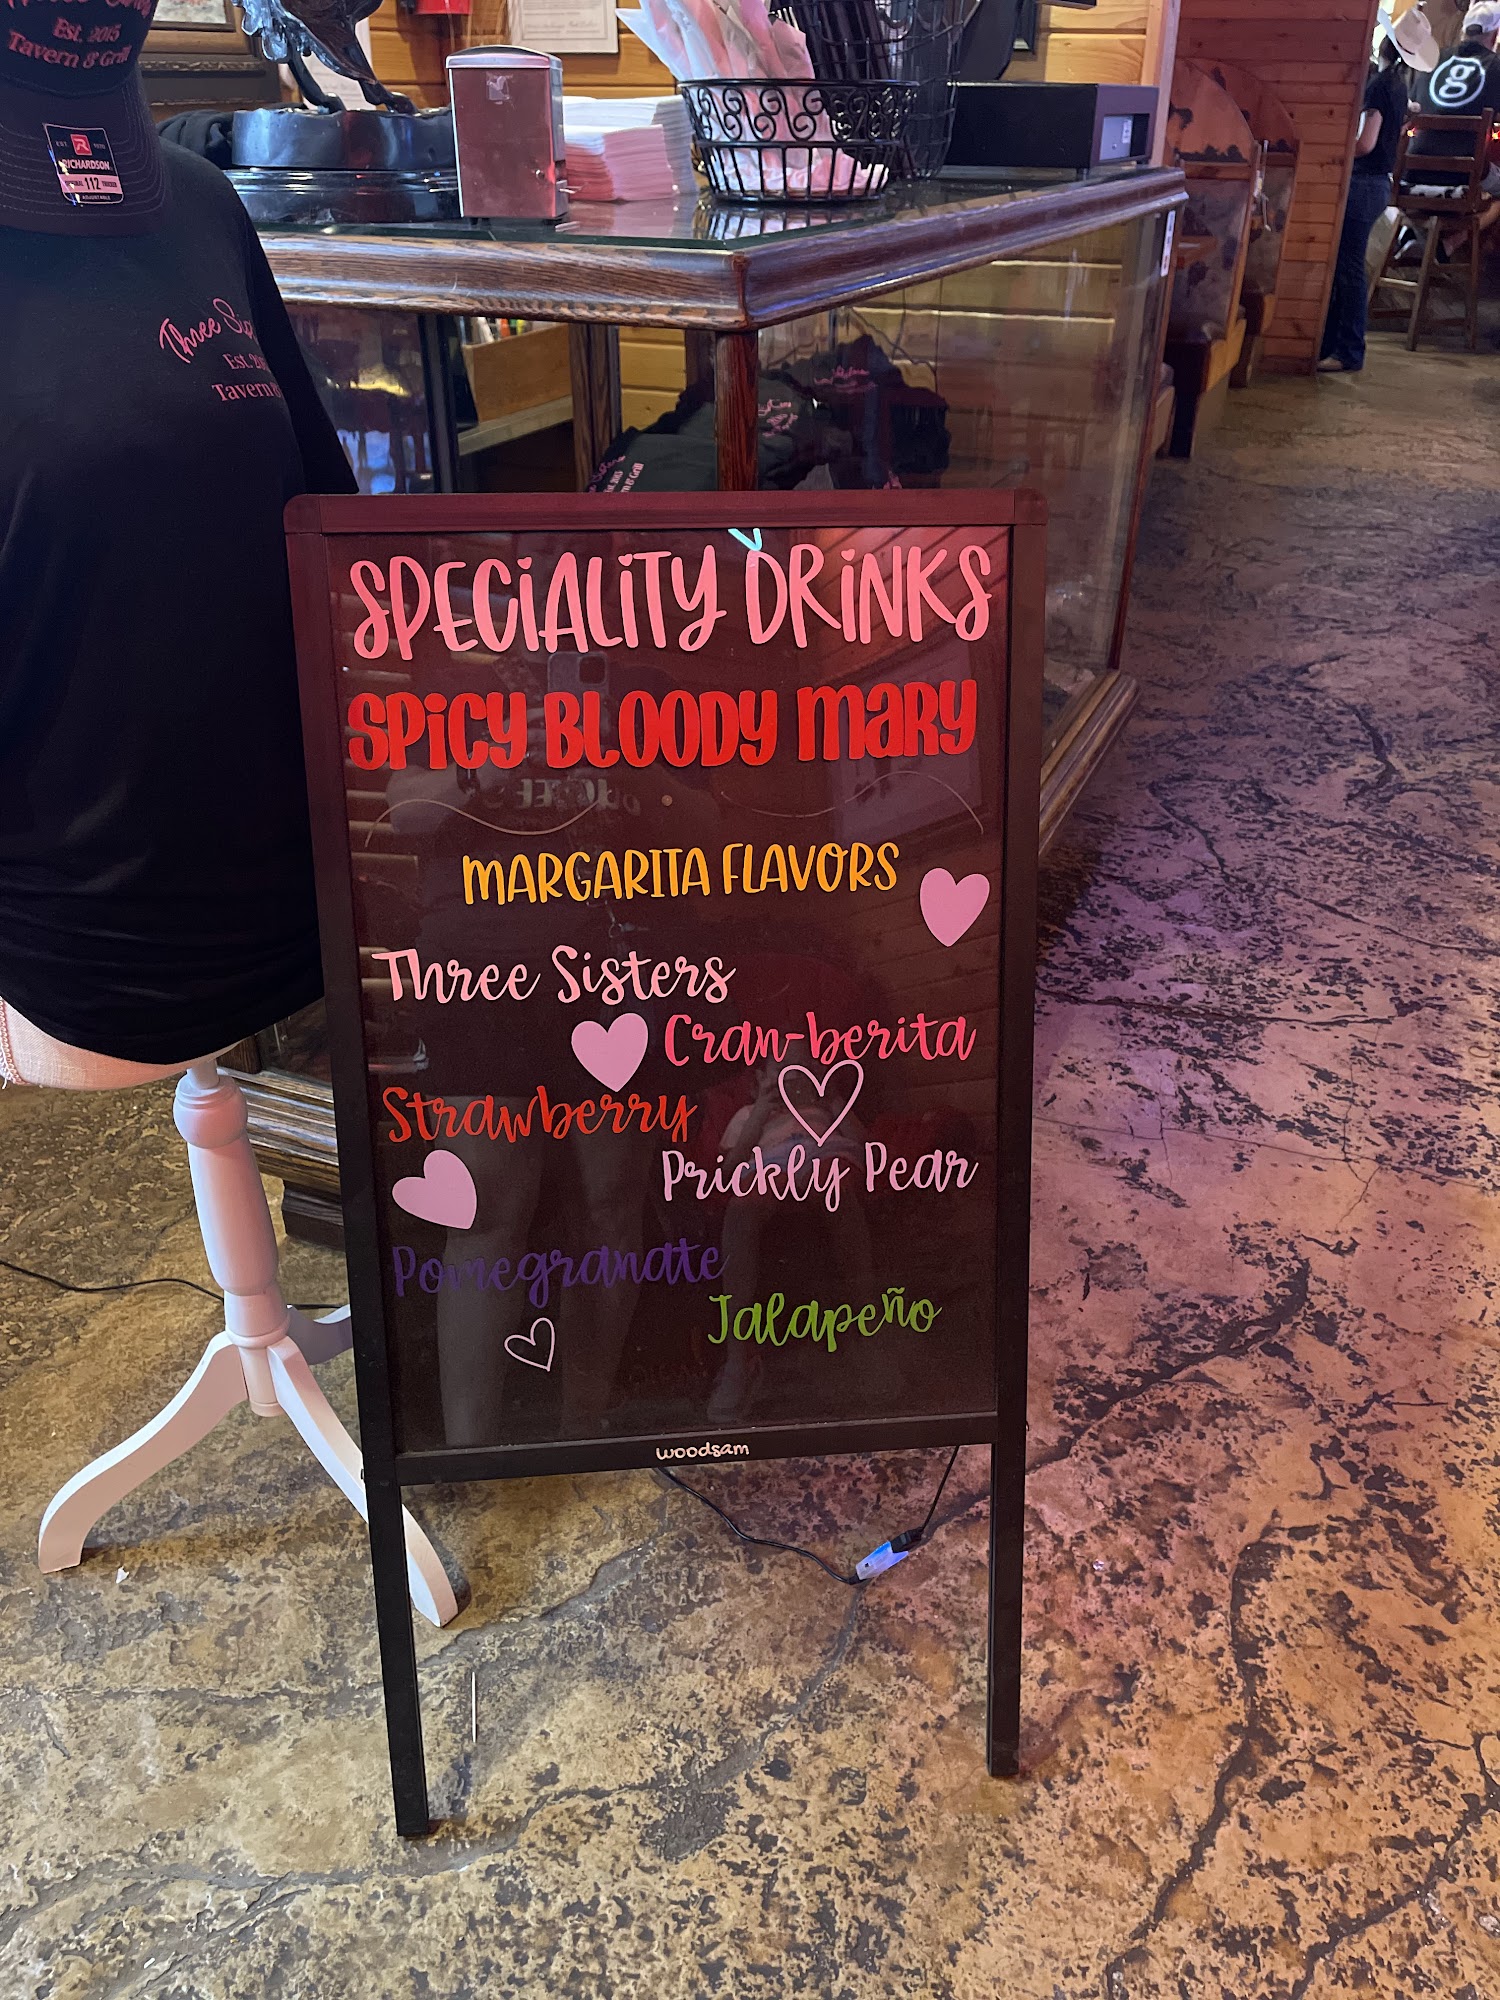 Est. 2015
Tavern & Grill
R
RICHARDSON
112
Three
Est.
Tavern
g
SPECIALITY DRINKS
SPICY BLOODY MARY
MARGARITA FLAVORS
Three Sisters
Cran-berita
Strawberry
Prickly Pear
Pomegranate
Jalapeño
woodsam